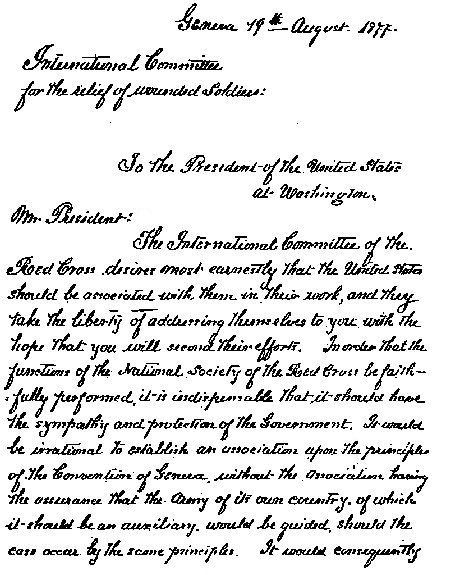 Geneva 19th August 1877.
International Committee
for the relief of wounded Soldiers:
To the President of the United States
at Washington.
Mr President:
The International Committee of the
Red Cross desires most earnestly that the United States
should be associated with them in their work, and they
take the liberty of addressing themselves to you, with the
hope that you will second their efforts. In order that the
functions of the National Society of the Red Cross be faith-
fully performed, it is indispensable that it should have
the sympathy and protection of the Government. It would
be irrational to establish an association upon the principles
of the Convention of Geneva, without the association having
the assurance that the Army of its own country, of which
it should be an auxiliary, would be guided, should the
case occur, by the same principles. It would consequently